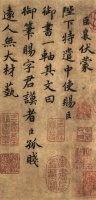 臣襄伏蒙
陛下特遣中使賜臣
御書一軸其文曰
御筆賜字君謨者臣孤賤
遠人無大材藝